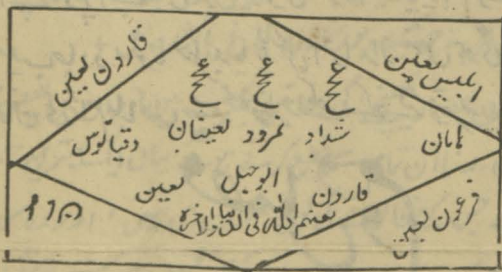 ابلیس لعین
قارون لعین
عح عح عح
هامان شداد نمرود لعینان دقیانوس
قارون ابوجهل لعین
لعنهم الله فی الدنیا والآخرة
فرعون لعین